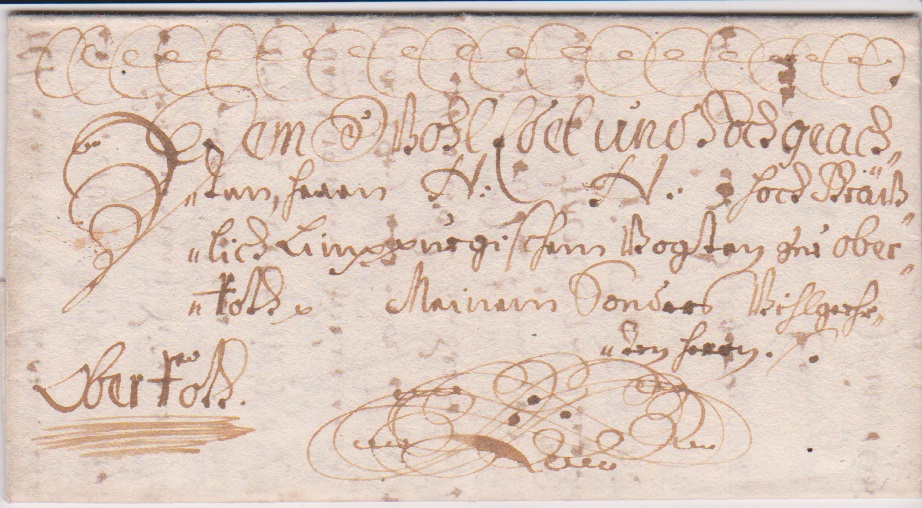 Dem WohlEdel und Hochgeach„
„ten, herrn N: N: Hoch Gräf„
„lich Limppurgischem Vogten zue Ober„
„Roth. Meinem Sonders Vihlgeehr„
„ten herrn.
OberRoth.